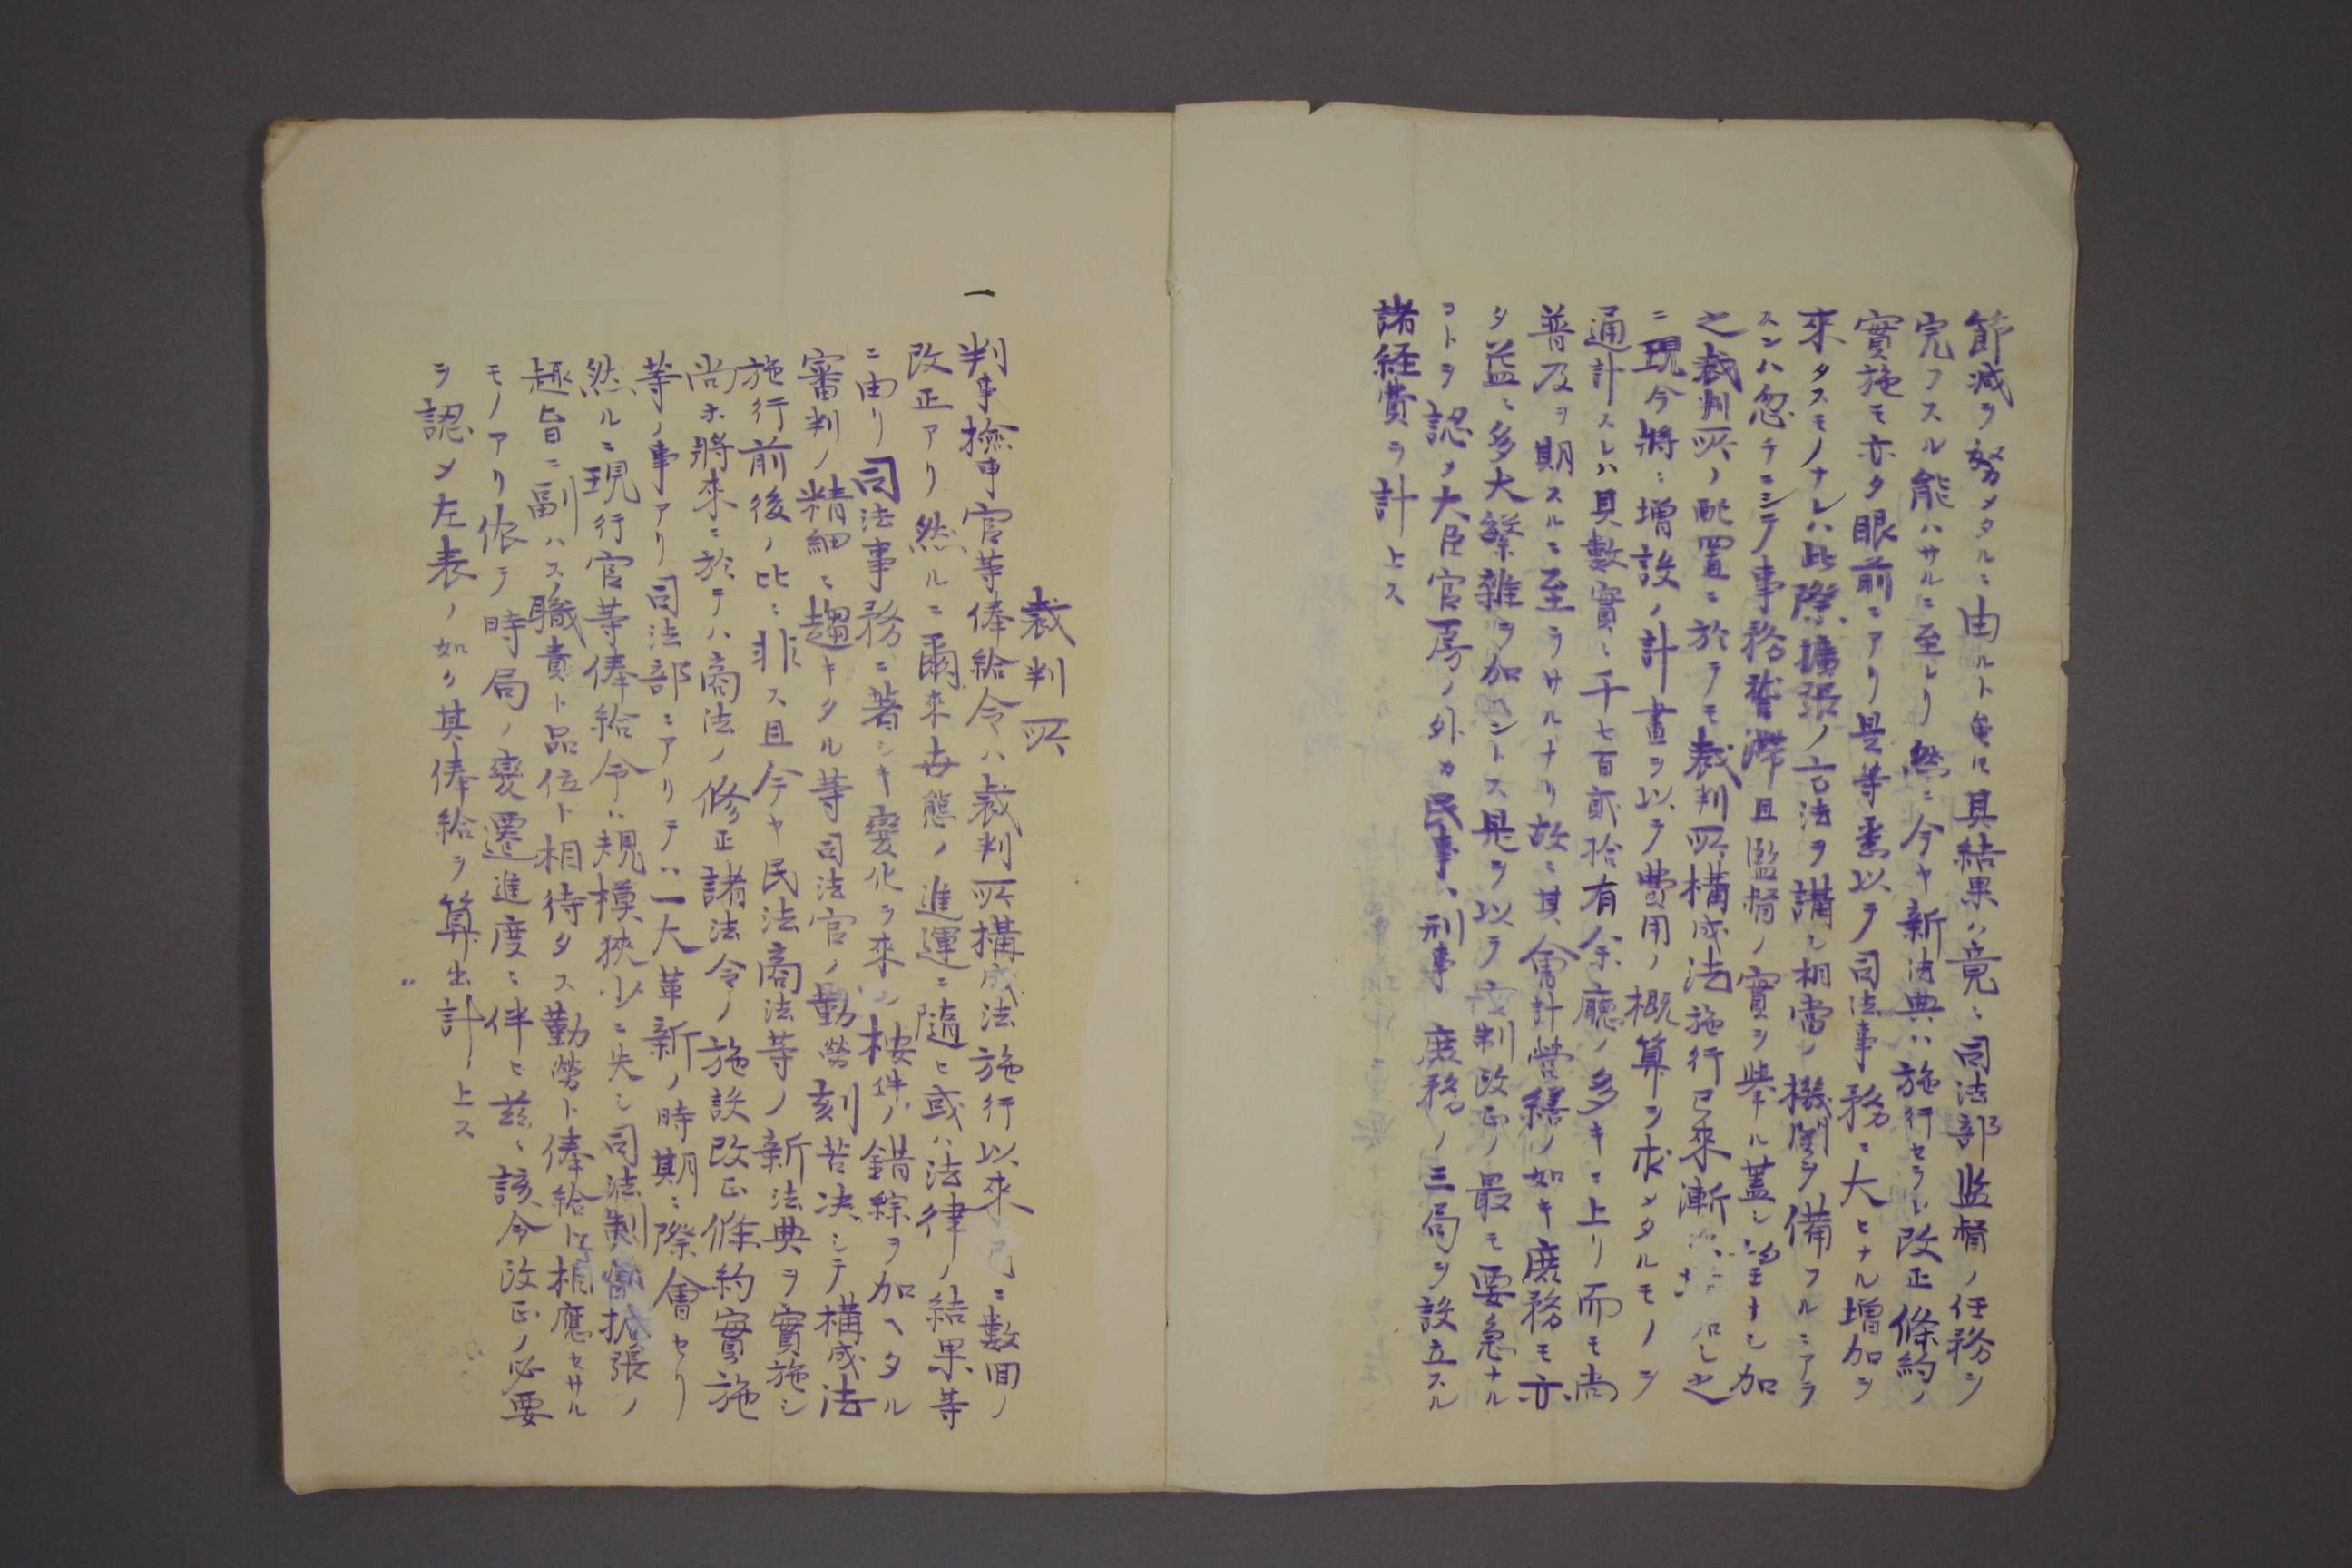 節減ヲ努メタルニ由ルト雖トモ其結果ハ竟ニ司法部監督ノ任務ヲ
完フスル能ハサルニ至レリ然ニ今ヤ新法典ハ施行セラレ改正條約ノ
實施モ亦タ眼前ニアリ是等悉以テ司法事務ニ大ヒナル増加ヲ
來タスモノナレハ此際擴張ノ方法ヲ講シ相當ノ機關ヲ備フルニアラ
スンハ忽チニシテ事務壅滯且監督ノ實ヲ擧ル蓋シ望ナシ加
之裁判所ノ配置ニ於テモ裁判所構成法施行已來漸次
ニ現今將ニ増設ノ計畫ヲ以テ費用ノ概算ヲ求メタルモノヲ
通計スレハ其數實ニ千七百貳拾有余廳ノ多キニ上リ而モ尚
普及ヲ期スルニ至ラサルナリ故ニ其會計營繕ノ如キ庶務モ亦
タ益々多大繁雜ヲ加ントス是ヲ以テ官制改正ノ最モ要急ナル
コトヲ認メ大臣官房ノ外カ民事刑事庶務ノ三局ヲ設立スル
諸経費ヲ計上ス
裁判所
一 判事撿事官等俸給令ハ裁判所構成法施行以來已ニ數回ノ
改正アリ然ルニ爾來世態ノ進運ニ隨ヒ或ハ法律ノ結果等
ニ由リ司法事務ニ著シキ變化ヲ來シ桉件ノ錯綜ヲ加ヘタル
審判ノ精細ニ趨キタル等司法官ノ勤勞刻苦决シテ構成法
施行前後ノ比ニ非ス且今ヤ民法商法等ノ新法典ヲ實施シ
尚ホ將來ニ於テハ商法ノ修正諸法令ノ施設改正條約實施
等ノ事アリ司法部ニアリテハ一大革新ノ時期ニ際會セリ
然ルニ現行官等俸給令ハ規模狹少ニ失シ司法制擴張ノ
趣旨ニ副ハス職責ト品位ト相待タス勤勞ト俸給ト相應セサル
モノアリ依テ時局ノ變遷進度ニ伴ヒ茲ニ該令改正ノ必要
ヲ認メ左表ノ如ク其俸給ヲ算出計上ス